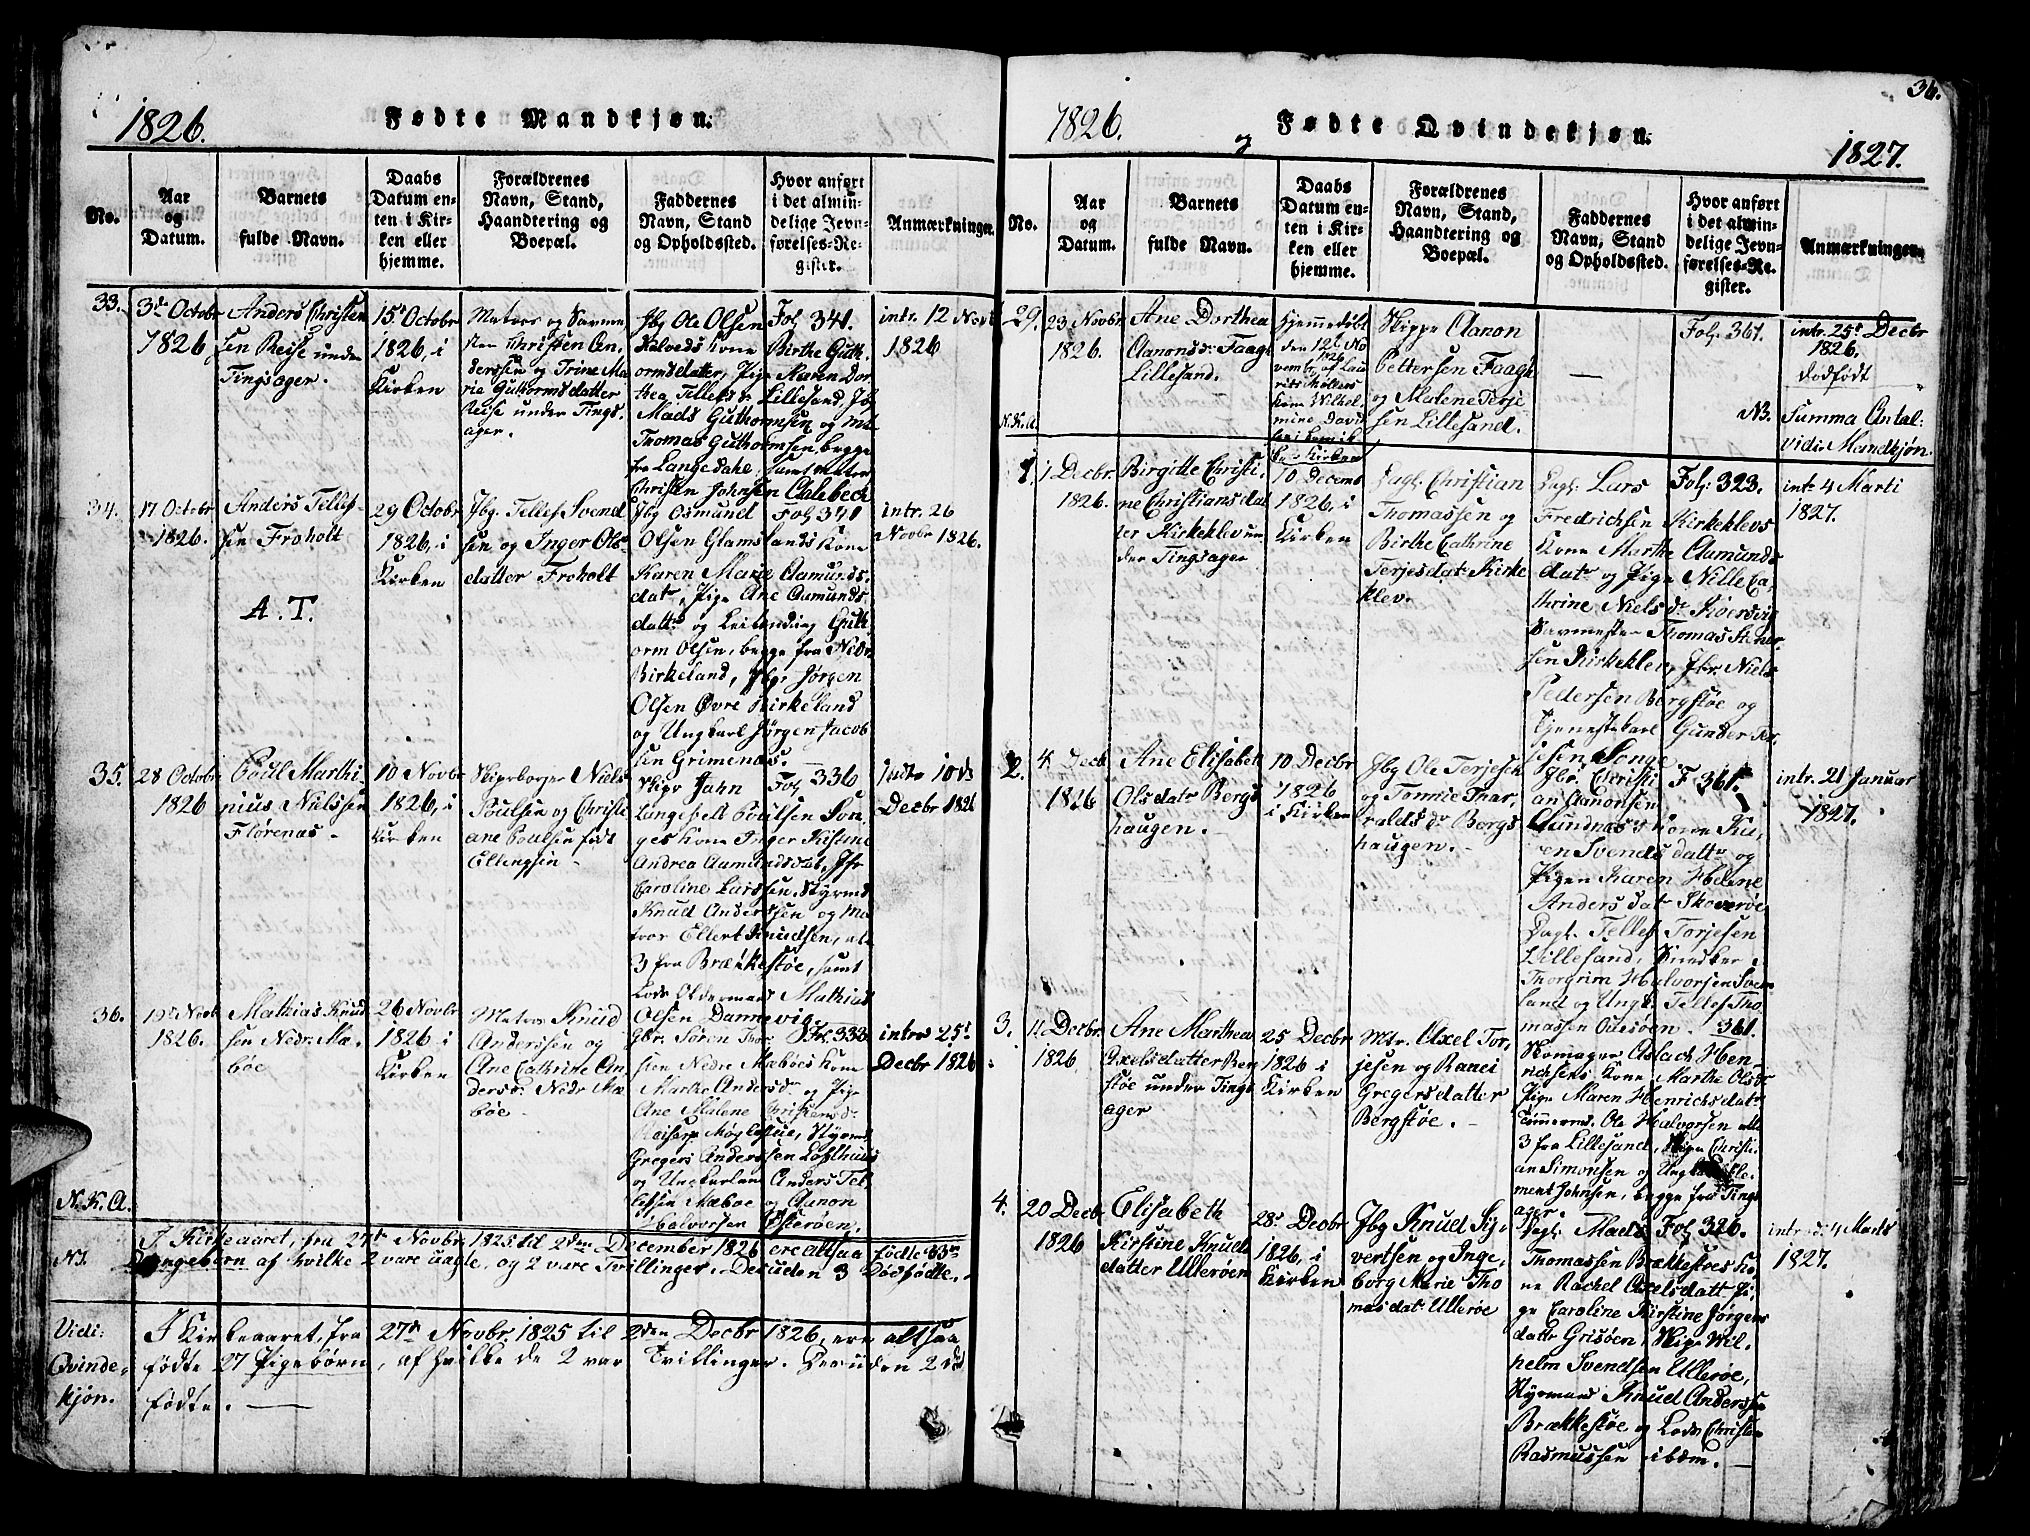 36.
1826.
Fødte Mandkjøn.
No.
Aar
og
Datum.
Barnets
fulde Navn.
Daabs
Datum en-
ten i Kir-
ken eller
hjemme.
Forældrenes
Navn, Stand,
Haandtering og
Boepæl.
Faddernes
Navn, Stand
og Opholdssted.
Hvor anført
i det almin-
delige Jevn-
førelses-Re-
gister.
Anmærkninger
33.
3de Octobr
1826
Anders Christen
sen Reise under
Tingsager.
15de Octobr
1826, i
Kirken
Christen An-
derssen og Trine Ma-
ria Guttormsdatter
Reise under Tings-
ager.
Jbg Ole Olsen
Kalveds Kone Birthe Guth-
ormsdatter, Pige Maren Dor-
thea Tellefsdr Lillesand, Jbg
Mads Guthormsen og
Thomas Guthormsen, begge
fra Langedahl, samt
Christen Johnsen Aalebech
Fol 341.
intr. 12 Novr
1826
34.
17 Octobr
1826.
Anders Tellef-
sen Froholt
A. T.
29 Octobr
1826, i
Kirken
Jbg. Tellef Svend
sen og Inger Ols-
datter Froholt
Jbg Osmund
Olsen Glamslands Kone
Karen Marie Aamunds-
datr, Pige Ane Aamunds-
dattr og Guth-
orm Olsen, begge fra Nedr.
Birkeland, Jbgr Jørgen
Olsen Øvre Birkeland
og Ungkarl Jørgen Jacob
sen Grimenæs.
Fol 341
intr. 26
Novbr 1826.
35.
28 Octobr
1826
Poul Marthi-
nius Nielssen
Florenæs -
10 Novbr
1826, i
Kirken
Niels
Poulsen og Christi-
ane Poulsen født
Ellingsen
Skipr Jahn
Langefelt Poulsen Son-
ges Kone Inger Kistine
Andrea Aamundsdat, Jfr
Caroline Larssen, Styrmd
Knud Anderssen og Ma-
tros Ellert Knudsen, alle
3 fra Brækkestøe, samt
Lods Oldermand Mathias
Olsen Dannevig.
Fol 336
Decbr 1826
36.
19de Novb
1826.
Mathias Knud
sen Nedr. Mæ-
bøe
26 Novbr
1826 i
Kirken
Matros Knud
Anderssen og
Ane Cathrine An-
dersdr Nedr Mæ-
bøe -
Gbr. Søren Thor-
sen Nedre Mæbøes Kone
Marthe Andersdr og Pige
Ane Malene Christensdr
Møglestue, Styrmd
Gregers Anderssen Lofthuus
og Ungkarlen Anders Tel-
lefsen Mæbøe og Aanon
Halvorsen Østerøen.
Fol. 333
intro 25de
Decbr 1826
N. K. A.
NB.
I Kirkeaaret, fra 27de Novbr. 1825 til 2den December 1826 ere altsaa fødte
Drengebørn af hvilke 2 vare uægte, og 2 vare Tvillinger. Desuden 3 Dødfødte.
Vidi:
Qvinde-
kjøn.
I Kirkeaaret, fra 27de Novbr. 1825 til 2den Decbr 1826, ere altsaa
fødte 27 Pigebørn, af hvilke de 2 var Tvillinger. Desuden 2 død
fødte.
1826.
og
Fødte Qvindekjøn.
1827.
No.
Aar
og
Datum.
Barnets
fulde Navn.
Daabs
Datum en-
ten i Kir-
ken eller
hjemme.
Forældrenes
Navn, Stand,
Haandtering og
Boepæl.
Faddernes
Navn, Stand
og Opholdssted.
Hvor anført
i det almin-
delige Jevn-
førelses-Re-
gister.
Anmærkninger.
29.
23 Novbr
1826.
Ane Dorthea
Aanonsdr Faagt
Lillesand.
Hjemmedøbt
den 12t No
vembr 1826 af Lau-
rits
Kone Wilhel-
mine David
Skipper Aanon
Pettersen Faagt
og Malene Terje
sen Lillesand.
—
Fol. 361.
intr. 25de Decbr
1826.
dødfødt
NB.
Summa Antal-
vide Mandkjøn.
N.K.A.
1.
1 Decbr
1826.
Birgitte Christi-
ne Christiansdat-
ter Kirkeklev un-
der Tingsager
10 Decemb
1826, i
Kirken
Dagl. Christian
Thomassen og
Birthe Cathrine
Terjesdatr Kirke
klev.
Dagl. Lars
Fredrichsen Kirkeklevs
Kone Marthe Aamunds
datr og Pige Nille Ca-
thrine Nielsdr
Thomas Stener
sen Kirkeklev, Jbr. Niels
Pedersen Bergstøe og
Tjenestekarl Gunder Ter-
jesen Songe
Fol. 323.
intr 4 Marti
1827.
2.
4 Decb
1826
Ane Elisabet
Olsdatr Bergs-
haugen.
10 Decbr
1826
i Kirken
Jbg Ole Terjesen
og Tonnie Thar-
raldsdr Bergs
haugen.
Christi
an Aanonsen
Kone Ka-
ren Svendsdattr og
Pigen Karen Helene
Andersdatr Skoverøe
Dagl. Tellef Torjesen
Lillesand, Smedker
Thorgrim Halvorsen
land og Ungk. Tellef Tho-
massen Odesøen.
F. 361.
intr. 21 Januar
1827.
3.
11 Decbr.
1826
Ane Marthea
Axelsdatter Ber
støe under Tings
ager
25 Decbr
1826 i
Kirken
Mtr. Axel Tor-
jesen og Ranei
Gregersdatter
Bergstøe.
361.
Skomager Aslach Hen-
richsens Kone Marthe Olsdr
Pige Maren Henrichsdatr
Tømmermd. Ole Halvorsen alle
3 fra Lillesand, Skipr Christi-
an Simonsen og Ungkarl Kle-
ment Johnsen, begge fra Tings
ager.
4.
20 Decbr
1826
Elisabeth
Kirstine Knuds
datter Ullerøen
28de Decbr
1826, i
Kirken
Jbg Knud Sig-
vertsen og Inge-
borg Marie Tho
masdatr Ullerøe
Dagl. Mads
Thomassen Brækkestøes Ko-
ne Rachel Axelsdatt, Pi-
ge Caroline Kirstine Jørgens
dattr Grisøen, Skipr Wil-
helm Svendsen Ullerøe,
Styrmand Knud Anderssen
Brækkestøe og Lods Christen
Rasmussen ibdm.
Fol. 326.
intr d. 4 Marts
1827.